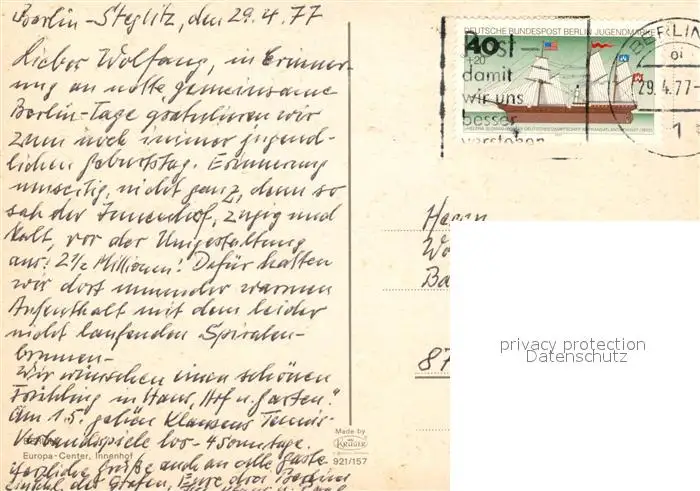 Berlin-Steglitz, den 29.4.77
Lieber Wolfgang, in Erinner-
ung an nette gemeinsame
Berlin-Tage gratulieren wir
zum noch immer jugend-
lichen Geburtstag. Erinnerung
umseitig, nicht ganz, denn so
sah der Innenhof, zugig und
kalt, vor der Umgestaltung
aus: 2½ Millionen! Dafür hatten
wir dort nunmehr warmen
Aufenthalt mit dem leider
nicht laufenden Spiralen-
brunnen-
Wir wünschen einen schönen
Frühling in Haus, Hof u. Garten!
Am 1.5. gehen Klausens Tennis-
Verbandsspiele los - 4 Sonntage.
Europa-Center, Innenhof
Herzliche Grüße auch an alle Gäste
Eure drei Berliner
Made by
KRÜGER
921/157
DEUTSCHE BUNDESPOST BERLIN JUGENDMARKE
40
+20
damit
wir uns
besser
verstehen
BERLIN
29.4.77-
1
Herrn
Wo
Ba
87
privacy protection
Datenschutz